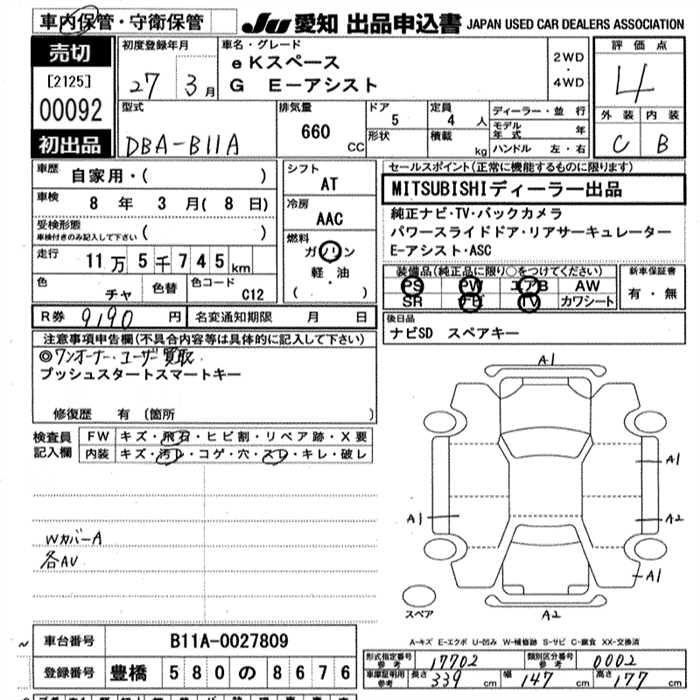 車内保管・守衛保管
JU 愛知 出品申込書 JAPAN USED CAR DEALERS ASSOCIATION
売切
[2125]
00092
初出品
初度登録年月
27年 3月
車名・グレード
eKスペース
G E-アシスト
2WD
・
4WD
評価点
4
外装 内装
C B
型式
DBA-B11A
排気量
660 cc
ドア
5
形状
定員
4 人
積載 kg
ディーラー・並行
モデル年式 年
ハンドル 左・右
車歴 自家用・( )
車検 8年 3月(8日)
受検形態
車検付きのみ記入して下さい ( )
走行 11万5千745km
色 チャ 色替 色コード C12
シフト
AT
冷房
AAC
燃料
ガソリン
軽・油
( )
セールスポイント(正常に機能するものに限ります)
MITSUBISHIディーラー出品
純正ナビ・TV・バックカメラ
パワースライドドア・リアサーキュレーター
E-アシスト・ASC
装備品(純正品に限り○をつけてください)
PS PW エアB AW
SR ナビ TV カワシート
新車保証書
有・無
R券 9190 円 名変通知期限 月 日
後日品
ナビSD スペアキー
注意事項申告欄(不具合内容等は具体的に記入して下さい)
◎ワンオーナー、ユーザー買取
プッシュスタートスマートキー
修復歴 有 (箇所 )
検査員
記入欄
FW キズ・飛石・ヒビ割・リペア跡・X要
内装 キズ・汚レ・コゲ・穴・スレ・キレ・破レ
WカバーA
各AU
A1
A1
A1
A2
A1
A2
スペア
A-キズ E-エクボ U-凹み W-補修跡 S-サビ C-腐食 XX-交換済
車台番号 B11A-0027809
登録番号 豊橋 580 の 8676
形式指定番号 参考 17702 類別区分番号 参考 0002
車庫証明用 参考 長さ 339 cm 幅 147 cm 高さ 177 cm